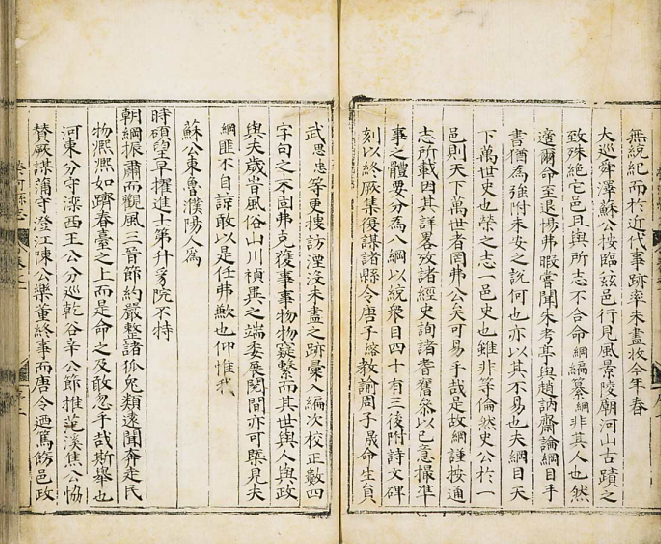 無統紀而於近代事跡率未盡收今年春
大巡舜澤蘇公按臨茲邑行見風景陵廟河山古蹟之
致殊絕它邑且與所志不合命綱編纂綱非其人也然
適爾命至退惕弗暇嘗聞朱考亭與趙訥齋論綱目手
書猶為強附未安之說何也亦以其不易也夫綱目天
下萬世史也榮之志一邑史也雖非等倫然史公於一
邑則天下萬世者罔弗公矣可易乎哉是故綱謹按通
志所載因其詳畧攷諸經史詢諸耆舊叅以已意撮準
事之體要分為八綱以統衆目四十有三後附詩文碑
刻以終厥集復謀諸縣令唐子 教諭周子晟命生員
武思忠等更搜訪湮沒未盡之跡彙入編次校正數四
字句之不同弗克復事事物物窺繫而其世與人與政
與夫歲眚風俗山川禎異之端委展閱間亦可槩見夫
綱匪不自諒敢以是任弗歉也仰惟我
蘇公東魯濮陽人為
時碩望早擢進士第升豸院不持
朝綱振肅而觀風三晉節約嚴整諸狐兔類遠聞奔走民
物熙熙如躋春臺之上而是命之及敢忽乎哉斯舉也
河東分守滦西王公分巡乾谷辛公節推 溪焦公協
賛厥謀蒲守澄江陳公樂董終事而唐令迺篤飭邑政
榮河縣志